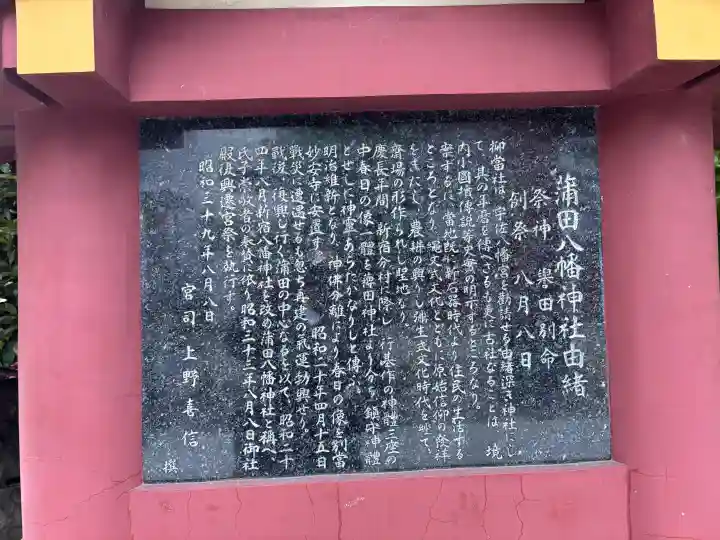 蒲田八幡神社由緒
祭神 譽田別命
例祭 八月八日
抑當社は、宇佐八幡宮を勸請せる由緒深き神社にし
て、其の年歴を傳へざるも更に古社なることは、境
内小圓墳傳説等文献の明示するところなり。
案ずるに、當地既に新石器時代より住民の生活する
ところとなり、繩文式文化とともに原始信仰の
をきたし、農耕の興りし弥生式文化時代を映て、
齋場の形作られし聖地なり。
慶長年間、新宿分村に際し、行基作の神體三座の
中春日の像一體を薭田神社より分ち、鎮守神體
とせしに神靈あらたかなりしと傳ふ。
明治維新となり、神佛分離により春日の像を別當
妙安寺に安置す。昭和二十年四月十五日
戰災に遭遇せるも忽ち再建の氣運勃興せり。
戰後、復興し行く蒲田の中心なるを以て、昭和二十
四年八月新宿八幡神社を改め蒲田八幡神社と稱へ、
氏子崇敬者の奉賛に依り昭和三十三年八月八日御社
殿復興遷宮祭を執行す。
昭和三十九年八月八日
宮司 上野喜信 撰